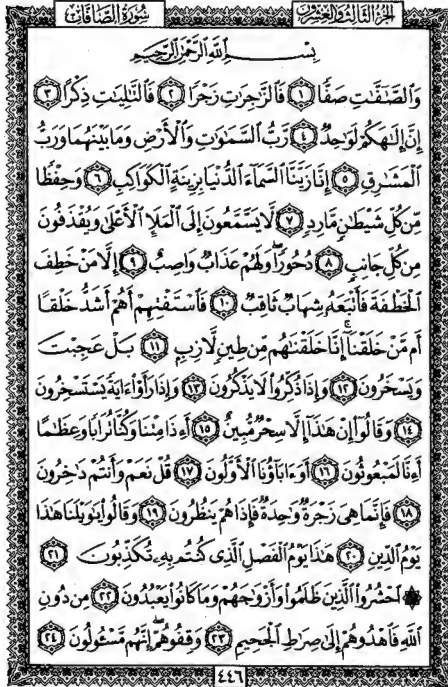 سُورَةُ الصَّافَّاتِ
الجُزْءُ الثَّالِثُ وَالعِشْرُونَ
بِسْمِ اللَّهِ الرَّحْمَٰنِ الرَّحِيمِ
وَالصَّٰٓفَّٰتِ صَفًّا ۝١ فَالزَّٰجِرَٰتِ زَجْرًا ۝٢ فَالتَّٰلِيَٰتِ ذِكْرًا ۝٣
إِنَّ إِلَٰهَكُمْ لَوَٰحِدٌ ۝٤ رَّبُّ السَّمَٰوَٰتِ وَالْأَرْضِ وَمَا بَيْنَهُمَا وَرَبُّ
الْمَشَٰرِقِ ۝٥ إِنَّا زَيَّنَّا السَّمَآءَ الدُّنْيَا بِزِينَةٍ الْكَوَاكِبِ ۝٦ وَحِفْظًا
مِّن كُلِّ شَيْطَٰنٍ مَّارِدٍ ۝٧ لَّا يَسَّمَّعُونَ إِلَى الْمَلَإِ الْأَعْلَىٰ وَيُقْذَفُونَ
مِن كُلِّ جَانِبٍ ۝٨ دُحُورًا وَلَهُمْ عَذَابٌ وَاصِبٌ ۝٩ إِلَّا مَنْ خَطِفَ
الْخَطْفَةَ فَأَتْبَعَهُ شِهَابٌ ثَاقِبٌ ۝١٠ فَاسْتَفْتِهِمْ أَهُمْ أَشَدُّ خَلْقًا
أَم مَّنْ خَلَقْنَا إِنَّا خَلَقْنَٰهُم مِّن طِينٍ لَّازِبٍ ۝١١ بَلْ عَجِبْتَ
وَيَسْخَرُونَ ۝١٢ وَإِذَا ذُكِّرُوا لَا يَذْكُرُونَ ۝١٣ وَإِذَا رَأَوْا ءَايَةً يَسْتَسْخِرُونَ
۝١٤ وَقَالُوٓا إِنْ هَٰذَآ إِلَّا سِحْرٌ مُّبِينٌ ۝١٥ أَءِذَا مِتْنَا وَكُنَّا تُرَابًا وَعِظَٰمًا
أَءِنَّا لَمَبْعُوثُونَ ۝١٦ أَوَءَابَآؤُنَا الْأَوَّلُونَ ۝١٧ قُلْ نَعَمْ وَأَنتُمْ دَٰخِرُونَ
۝١٨ فَإِنَّمَا هِىَ زَجْرَةٌ وَٰحِدَةٌ فَإِذَا هُمْ يَنظُرُونَ ۝١٩ وَقَالُوا يَٰوَيْلَنَا هَٰذَا
يَوْمُ الدِّينِ ۝٢٠ هَٰذَا يَوْمُ الْفَصْلِ الَّذِى كُنتُم بِهِۦ تُكَذِّبُونَ ۝٢١
۞ احْشُرُوا الَّذِينَ ظَلَمُوا وَأَزْوَٰجَهُمْ وَمَا كَانُوا يَعْبُدُونَ ۝٢٢ مِن دُونِ
اللَّهِ فَاهْدُوهُمْ إِلَىٰ صِرَٰطِ الْجَحِيمِ ۝٢٣ وَقِفُوهُمْ إِنَّهُم مَّسْـُٔولُونَ ۝٢٤
٤٤٦